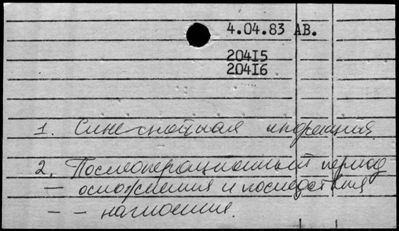 4.04.83 АВ.
20415
20416
1. Синегнойная инфекция.
2. Послеоперационный период
— осложнения и последствия
— — нагноения.